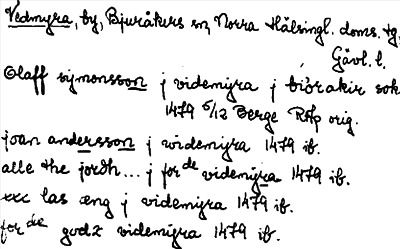 Vedmyra, by, Bjuråkers sn, Norra Hälsingl. doms. tg,
Gävl. l.
Olaff symonsson j videmÿra j biórakir sok
1479 5/12 Berge RAp orig.
joan andersson j videmÿra 1479 ib.
alle the jordh... j for de videmÿra 1479 ib.
xxc las æng j videmÿra 1479 ib.
for de godz videmÿra 1479 ib.